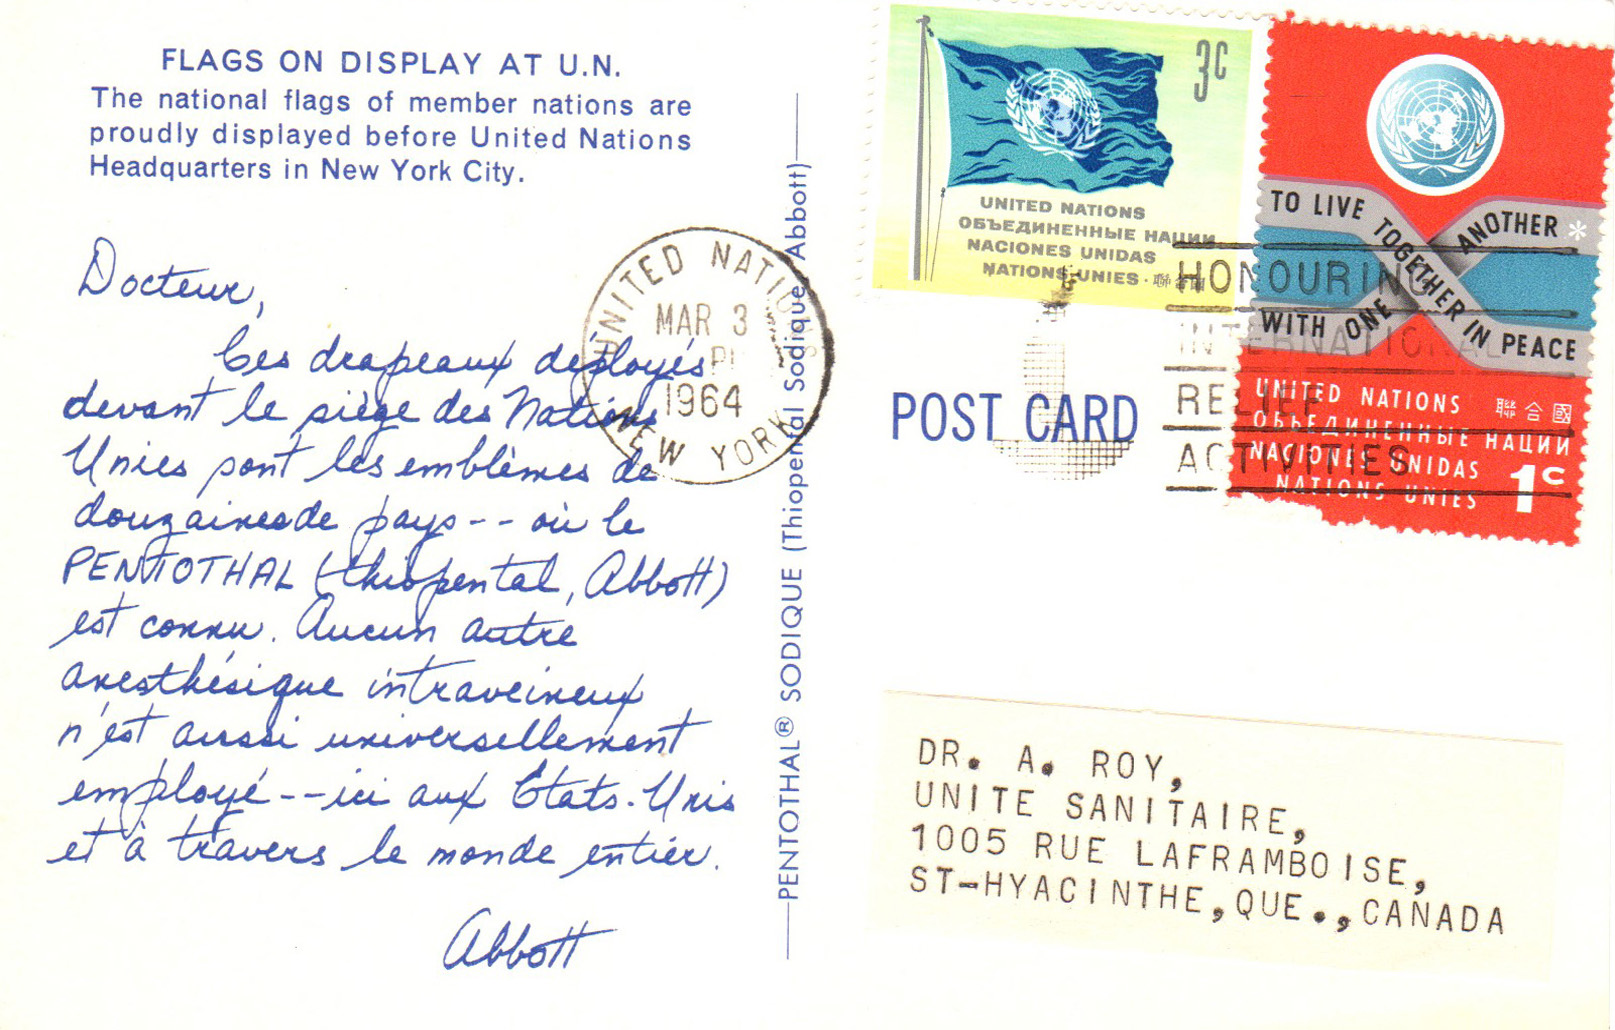 FLAGS ON DISPLAY AT U.N.
The national flags of member nations are
proudly displayed before United Nations
Headquarters in New York City.
Docteur,
Ces drapeaux deployés
devant le siège des Nations
Unies sont les emblèmes de
douzaines de pays -- où le
PENTOTHAL (thiopental, Abbott)
est connu. Aucun autre
anesthésique intraveineux
n'est aussi universellement
employé -- ici aux Etats-Unis
et à travers le monde entier.
Abbott
PENTOTHAL® SODIQUE (Thiopental Sodique Abbott)
UNITED NATIONS
MAR 3
1964
NEW YORK
3c
UNITED NATIONS
ОБЪЕДИНЕННЫЕ НАЦИИ
NACIONES UNIDAS
NATIONS UNIES · 聯合國
TO LIVE TOGETHER IN PEACE
WITH ONE ANOTHER *
UNITED NATIONS 聯合國
ОБЪЕДИНЕННЫЕ НАЦИИ
NACIONES UNIDAS
NATIONS UNIES
1c
HONOURING
INTERNATIONAL
RELIEF
ACTIVITIES
POST CARD
DR. A. ROY,
UNITE SANITAIRE,
1005 RUE LAFRAMBOISE,
ST-HYACINTHE,QUE.,CANADA